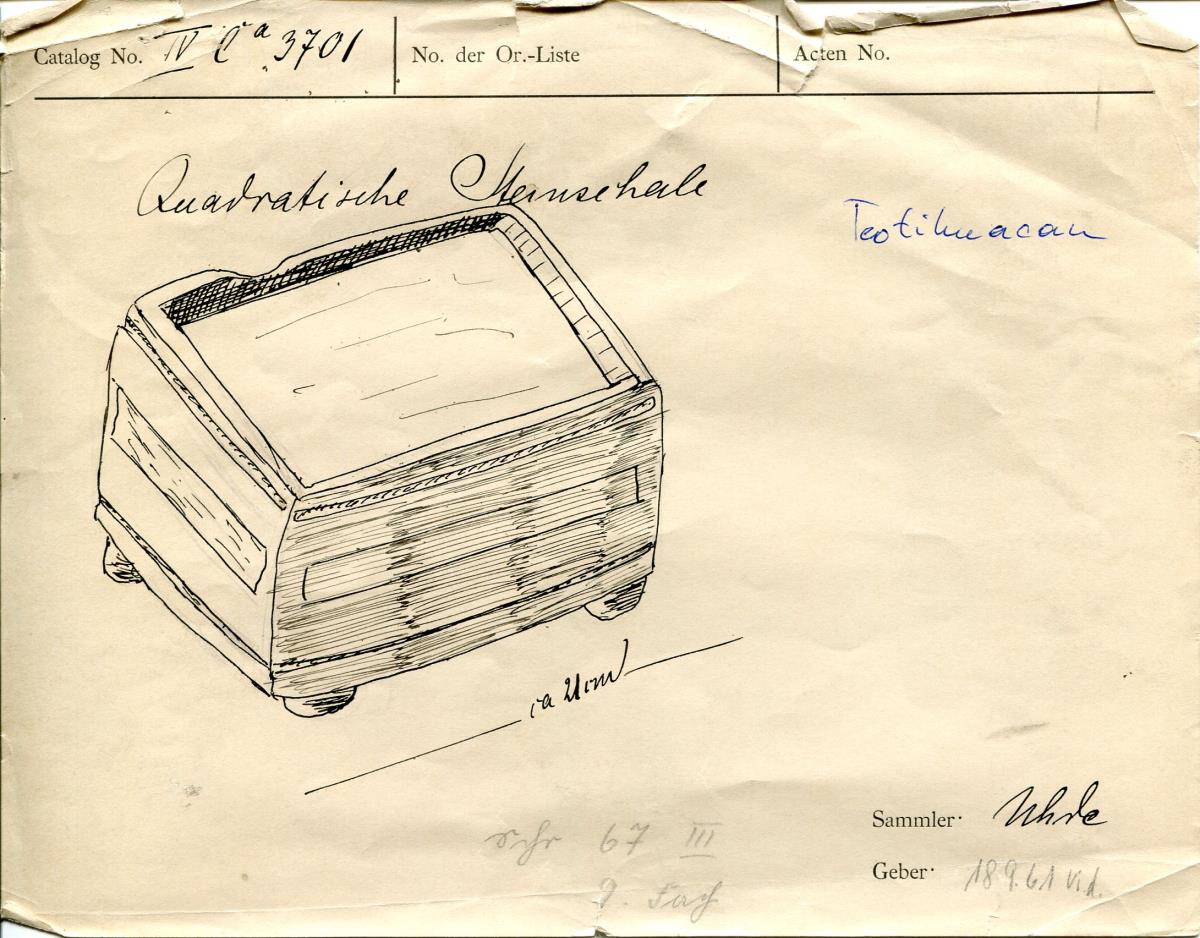 Catalog No. IV Ca 3701 No. der Or.-Liste Acten No.
Quadratische Steinschale
Teotihuacan
ca 21 cm
Sammler· Uhde
schr 67 III
Geber· 18 9.61 v.d.
9. Fach